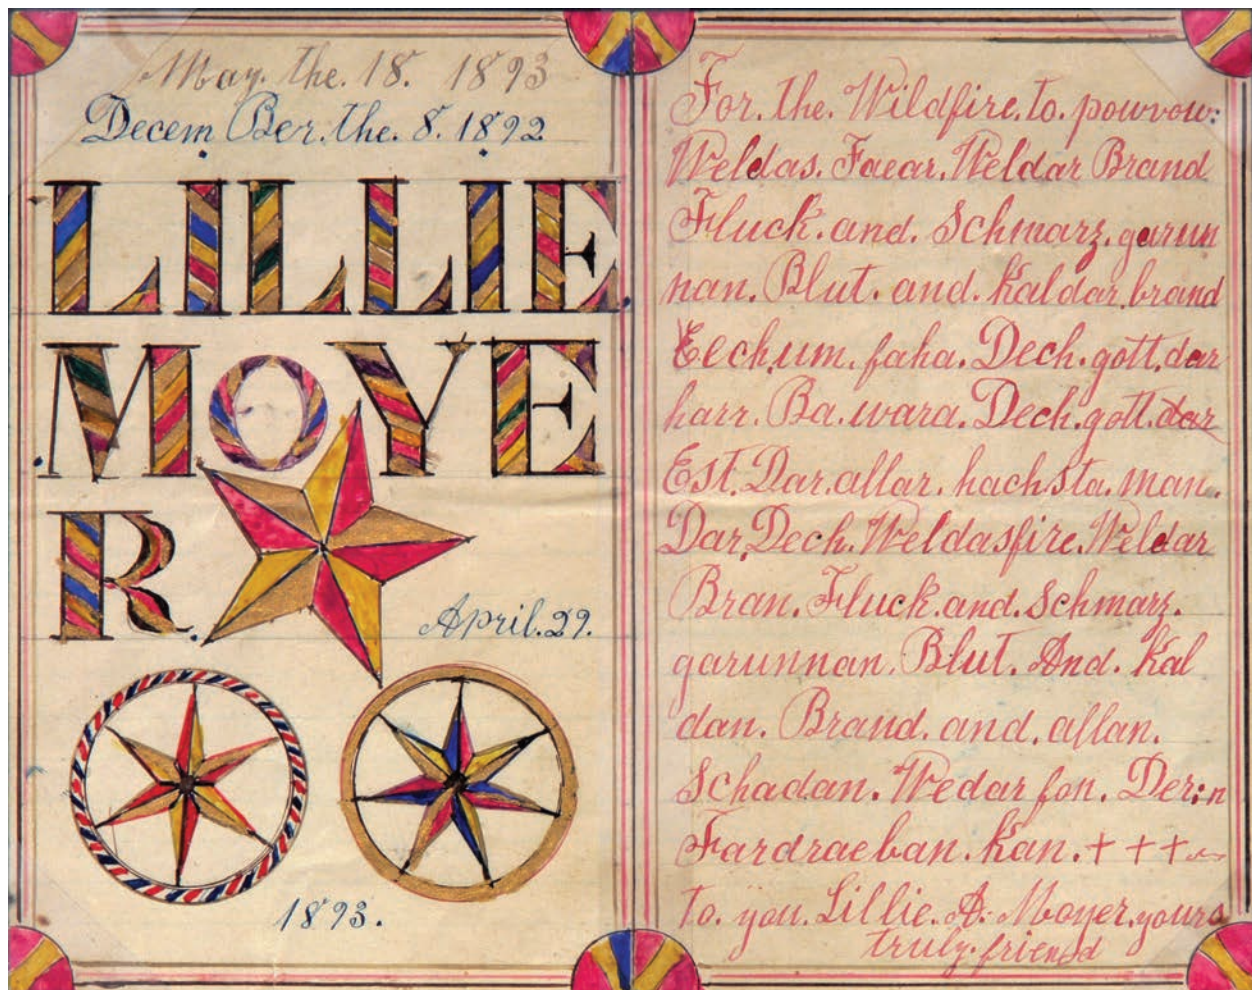 May. the. 18. 1893
Decem Ber. the. 8. 1892
LILLIE
MOYE
R.
April. 29.
1893.
For. the. Wildfire. to. powvow:
Weldas. Faear. Weldar Brand
Fluck. and. Schmarz. garun
nan. Blut. and. Kaldar. brand
Eech. um. faha. Dech. gott. dar
harr. Ba. wara. Dech. gott. dar
Est. Dar. allar. hachsta. man.
Dar. Dech. Weldasfire. Weldar
Bran. Fluck. and. Schmarz.
garunnan. Blut. And. Kal
dan. Brand. and. allan.
Schadan. Wedar fon. Der:n
Fardraeban. Kan. + + +
to. you. Lillie. A. Moyer. yours
truly. friend